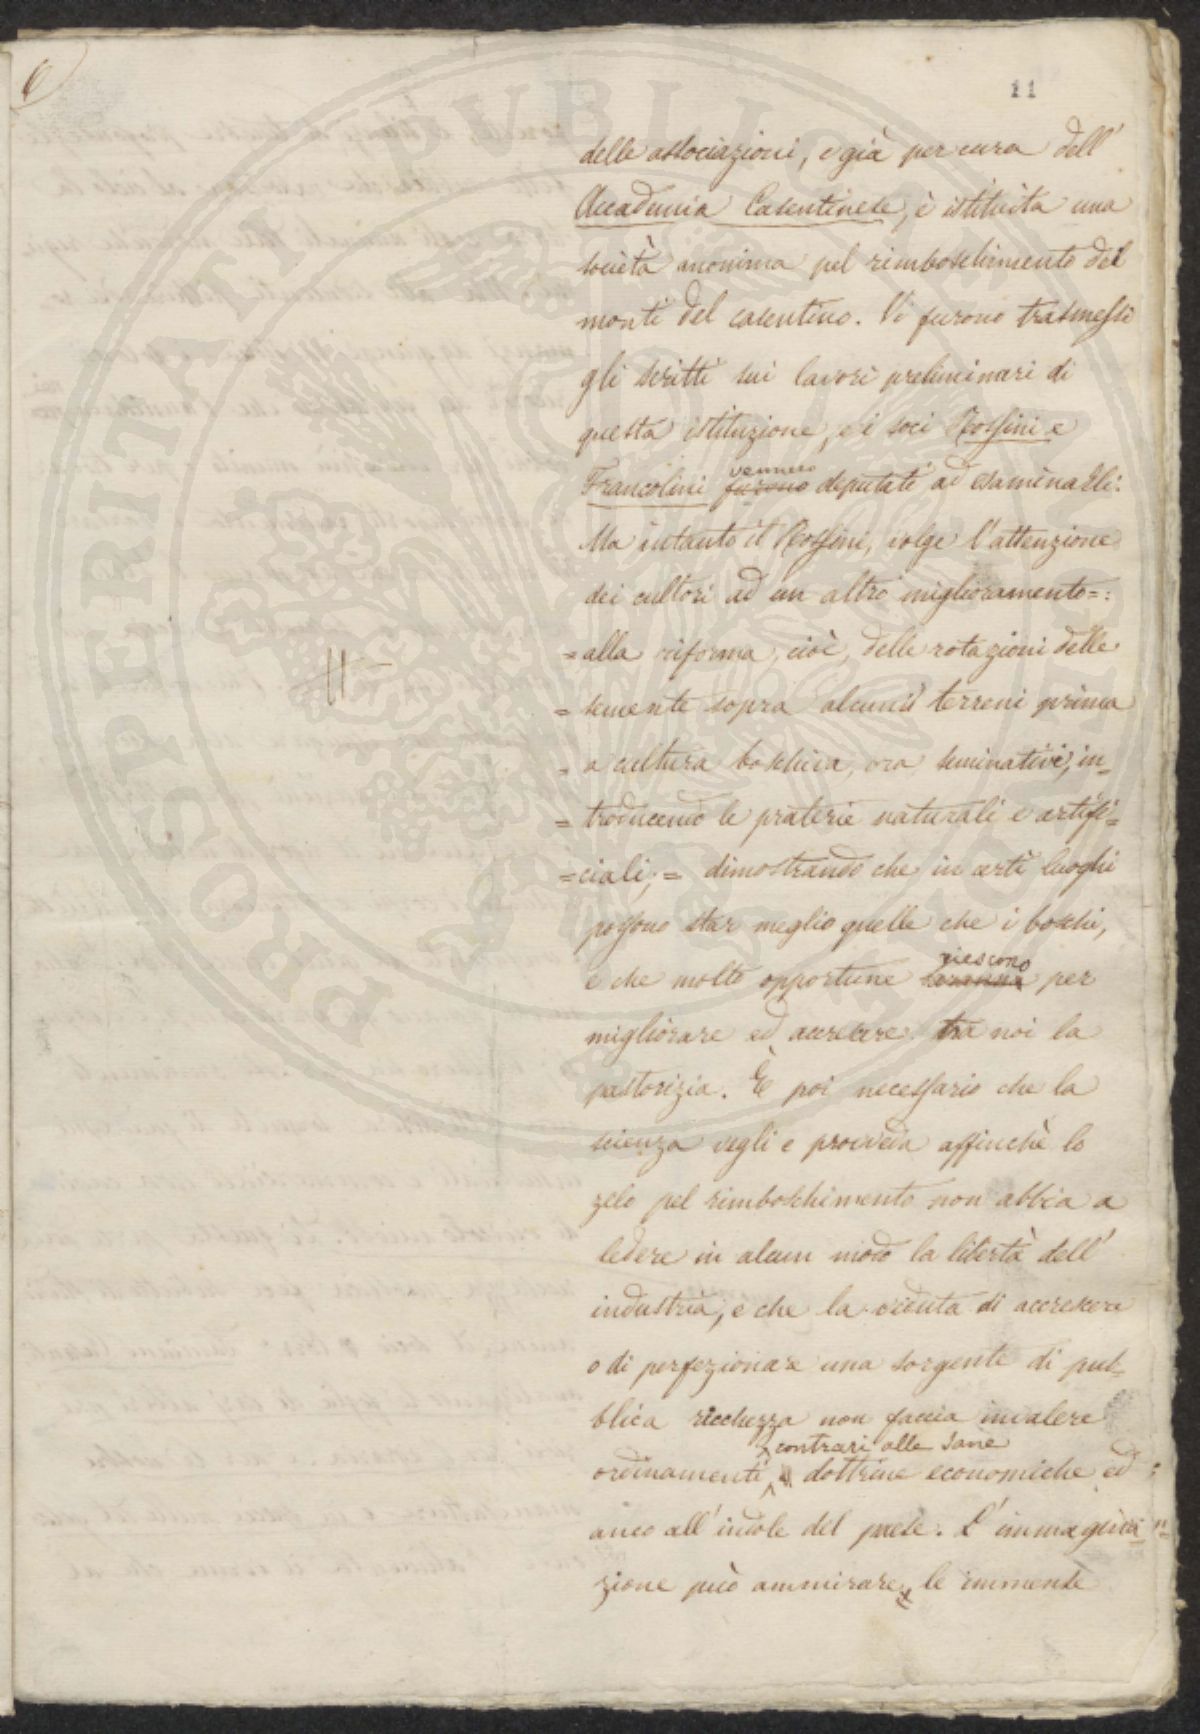 6
11
delle associazioni, e già per cura dell'
Accademia Casentinese, è istituita una
società anonima pel rimboschimento dei
monti del casentino. Vi furono trasmessi
gli scritti sui lavori preliminari di
questa istituzione, e i soci Rossini e
vennero
Francolini furono deputati ad esaminarli:
Ma intanto il Rossini, volge l'attenzione
dei cultori ad un altro miglioramento=:
=alla riforma, cioè, delle rotazioni delle
= sementi sopra alcuni terreni prima
= a cultura boschiva, ora seminativi, in=
= troducendo le praterie naturali e artifi=
=ciali;= dimostrando che in certi luoghi
possono star meglio quelle che i boschi,
riescono
e che molto opportune saranno per
migliorare ed accrescere tra noi la
pastorizia. È poi necessario che la
scienza vegli e provveda affinchè lo
zelo pel rimboschimento non abbia a
ledere in alcun modo la libertà dell'
industria, e che la veduta di accrescere
o di perfezionare una sorgente di pub=
blica ricchezza non faccia invalere
contrari alle sane
ordinamenti dottrine economiche ed
anco all'indole del paese. L'immagina=
zione può ammirare le immense
PROSPERITATI PUBLICAE